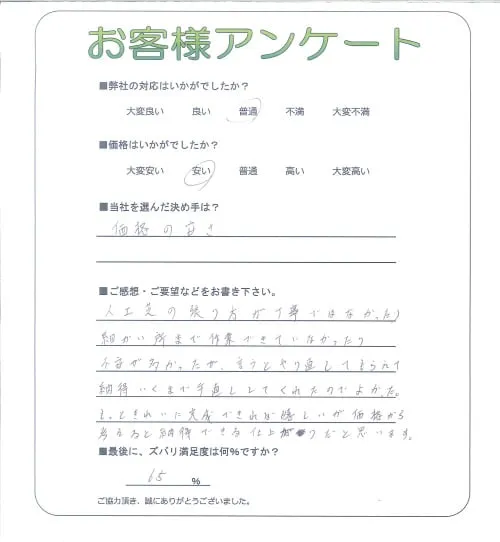 お客様アンケート
■弊社の対応はいかがでしたか？
大変良い 良い 普通 不満 大変不満
■価格はいかがでしたか？
大変安い 安い 普通 高い 大変高い
■当社を選んだ決め手は？
価格の安さ
■ご感想・ご要望などをお書き下さい。
人工芝の張り方が丁寧ではなかったり
細かい所まで作業できていなかったり
不安が多かったが、言うとやり直してもらえて
納得いくまで手直ししてくれたのでよかった。
もっときれいに完成できれば嬉しいが価格から
考えると納得できる仕上がりだと思います。
■最後に、ズバリ満足度は何％ですか？
65 %
ご協力頂き、誠にありがとうございました。